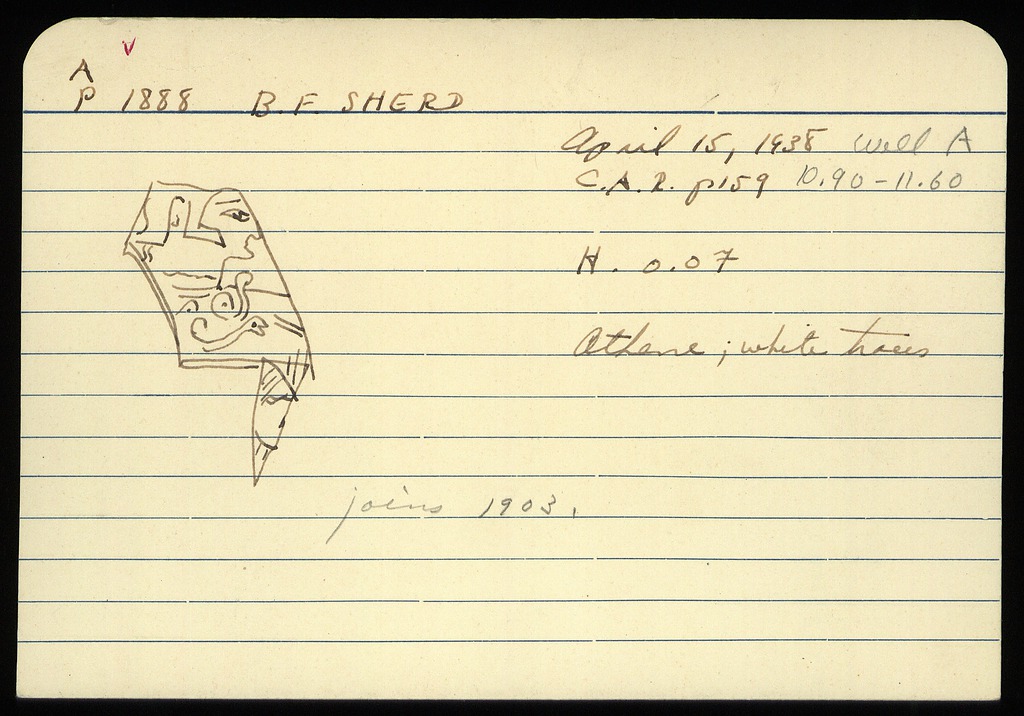 V
A
P 1888 B.F. SHERD
April 15, 1938 Well A
C.A.R. p159 10.90-11.60
H. 0.07
Athene; white traces
joins 1903.